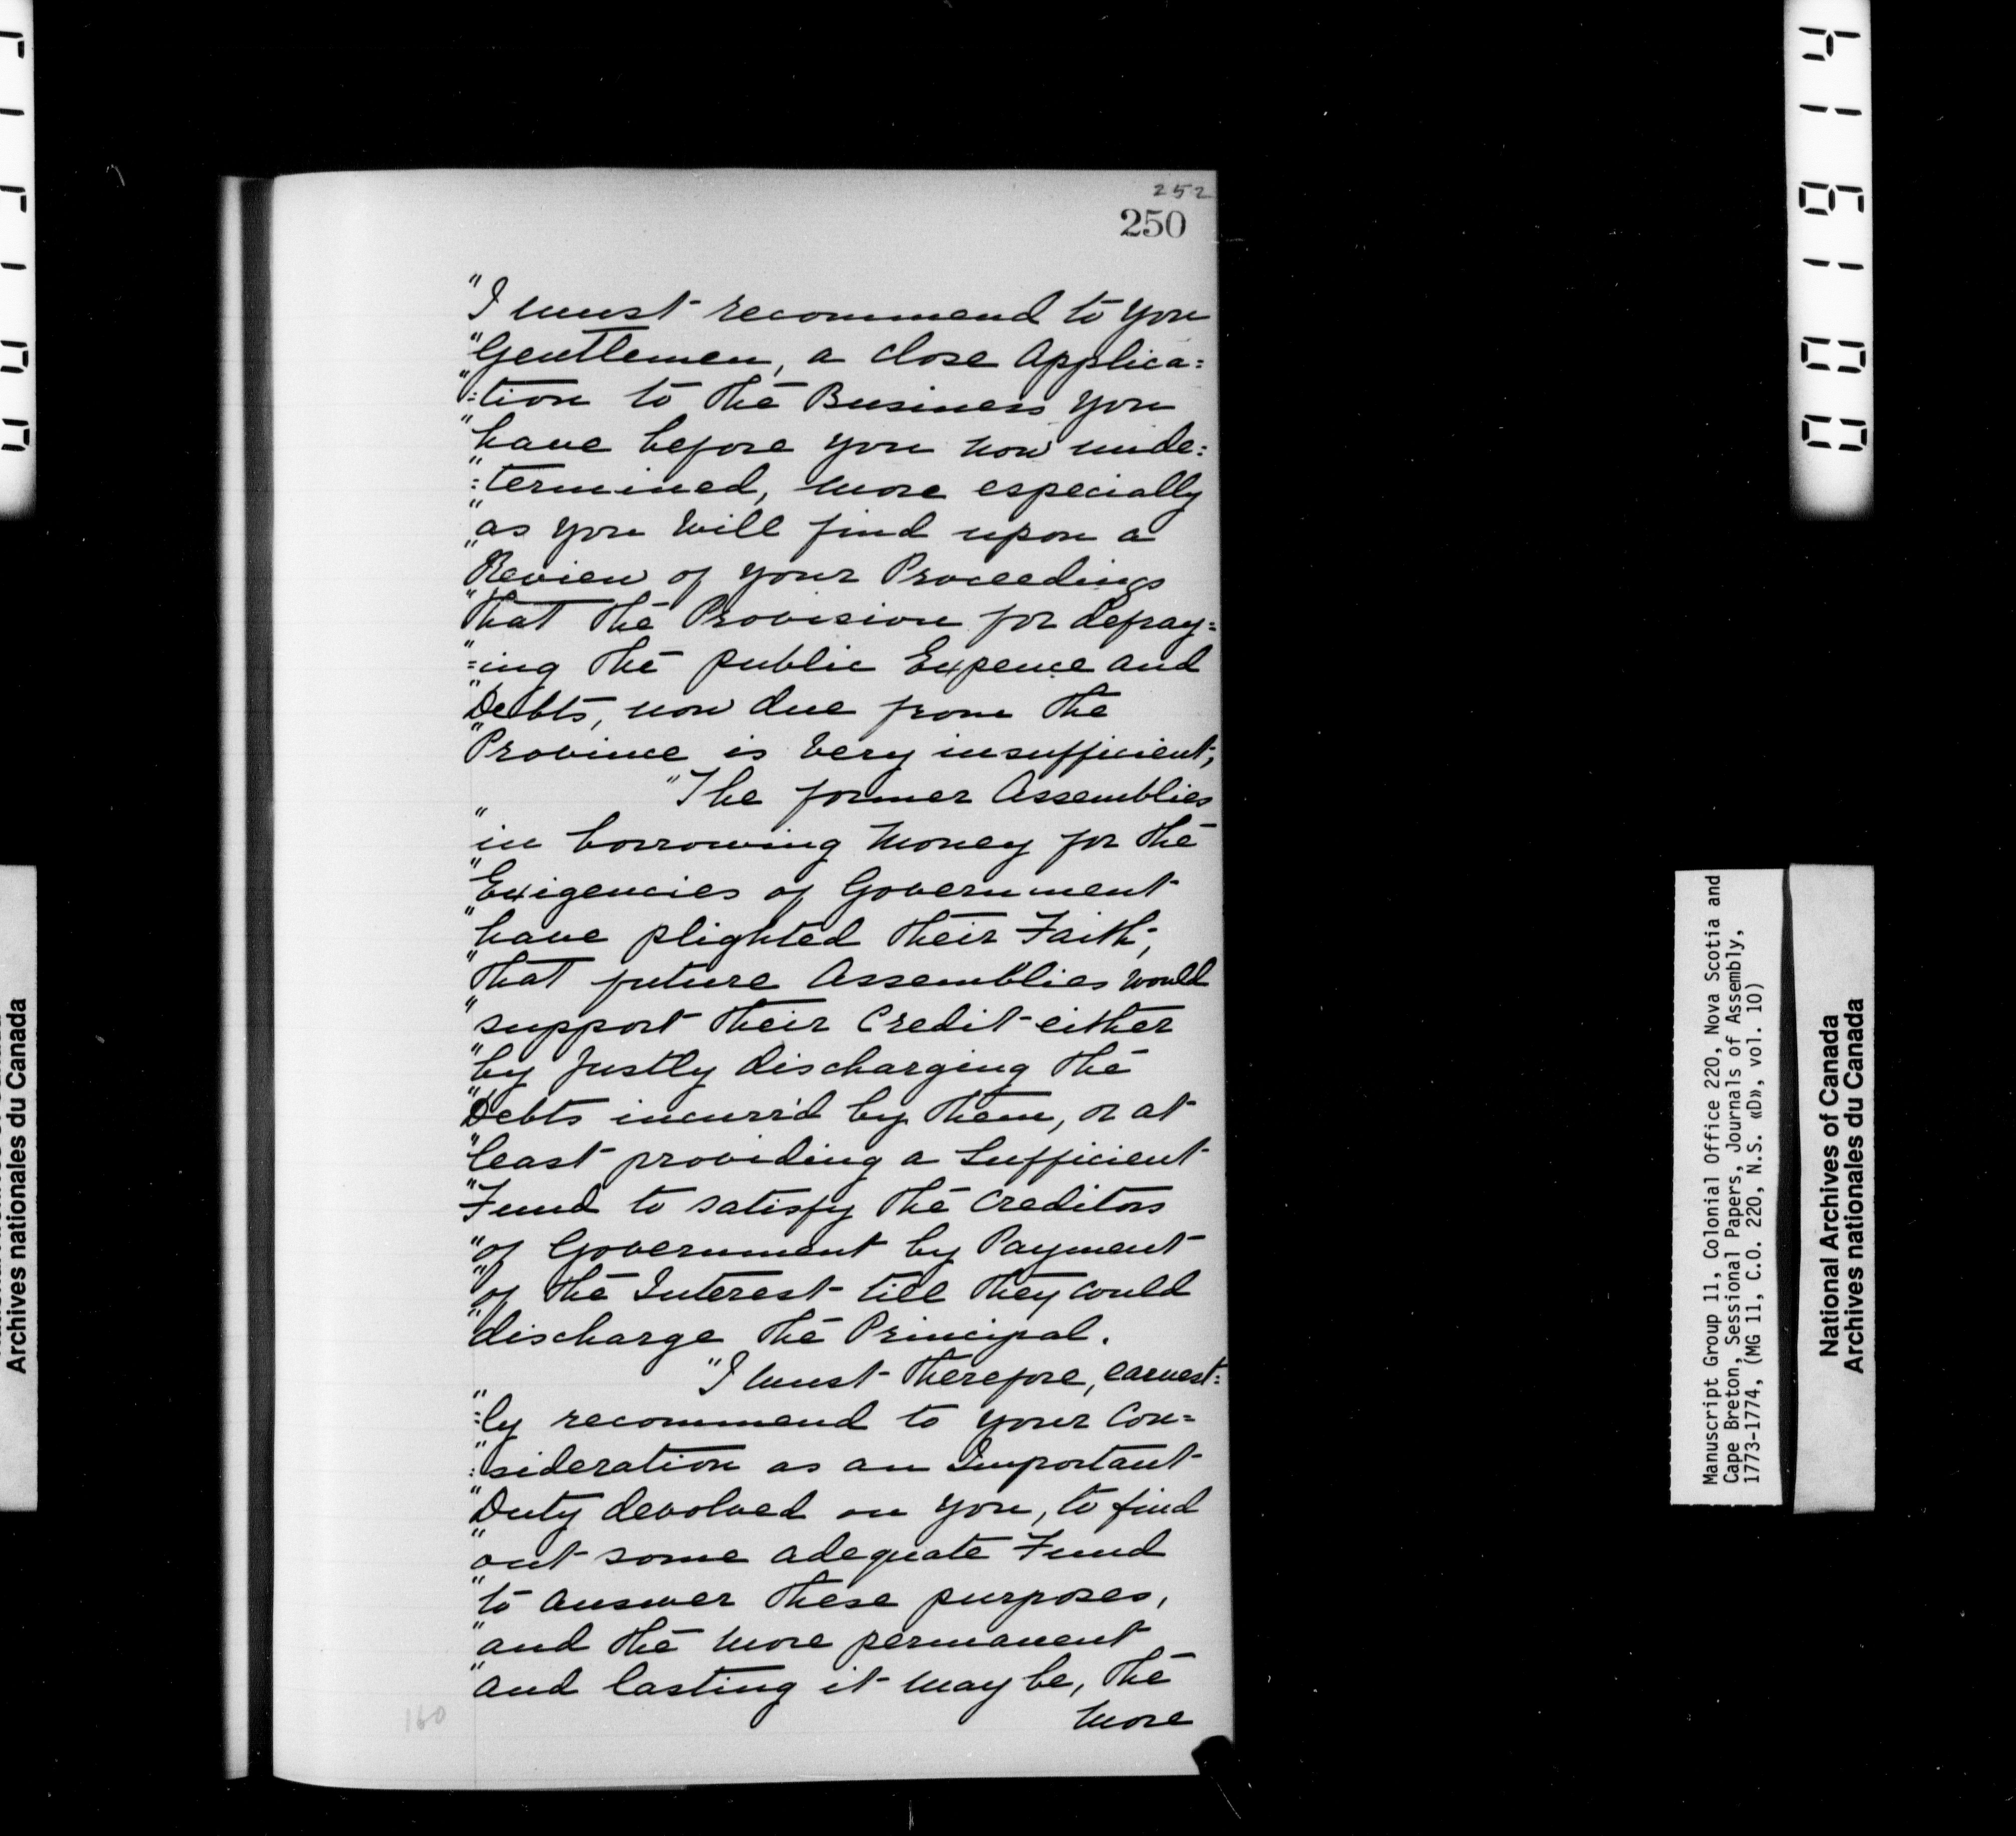 252
250
"I must recommend to you
"Gentlemen, a close Applica=
"=tion to the Business you
"have before you now unde=
"=termined, more especially
"as you will find upon a
"Review of your Proceedings
"that the Provision for defray=
"=ing the public Expence and
"Debts, now due from the
"Province is very insufficient;
"The former Assemblies
"in borrowing Money for the
"Exigencies of Government
"have plighted their Faith;
"that future Assemblies would
"support their Credit either
"by Justly discharging the
"Debts incurr'd by them, or at
"least providing a Sufficient
"Fund to satisfy the Creditors
"of Government by Payment
"of the Interest till they could
"discharge the Principal.
"I must therefore, earnest=
"=ly recommend to your Con=
"=sideration as an Important
"Duty devolved on you, to find
"out some adequate Fund
"to answer these purposes,
"and the more permanent
"and lasting it may be, the
more
160
Manuscript Group 11, Colonial Office 220, Nova Scotia and
Cape Breton, Sessional Papers, Journals of Assembly,
1773-1774, (MG 11, C.O. 220, N.S. «D», vol. 10)
National Archives of Canada
Archives nationales du Canada
Archives nationales du Canada